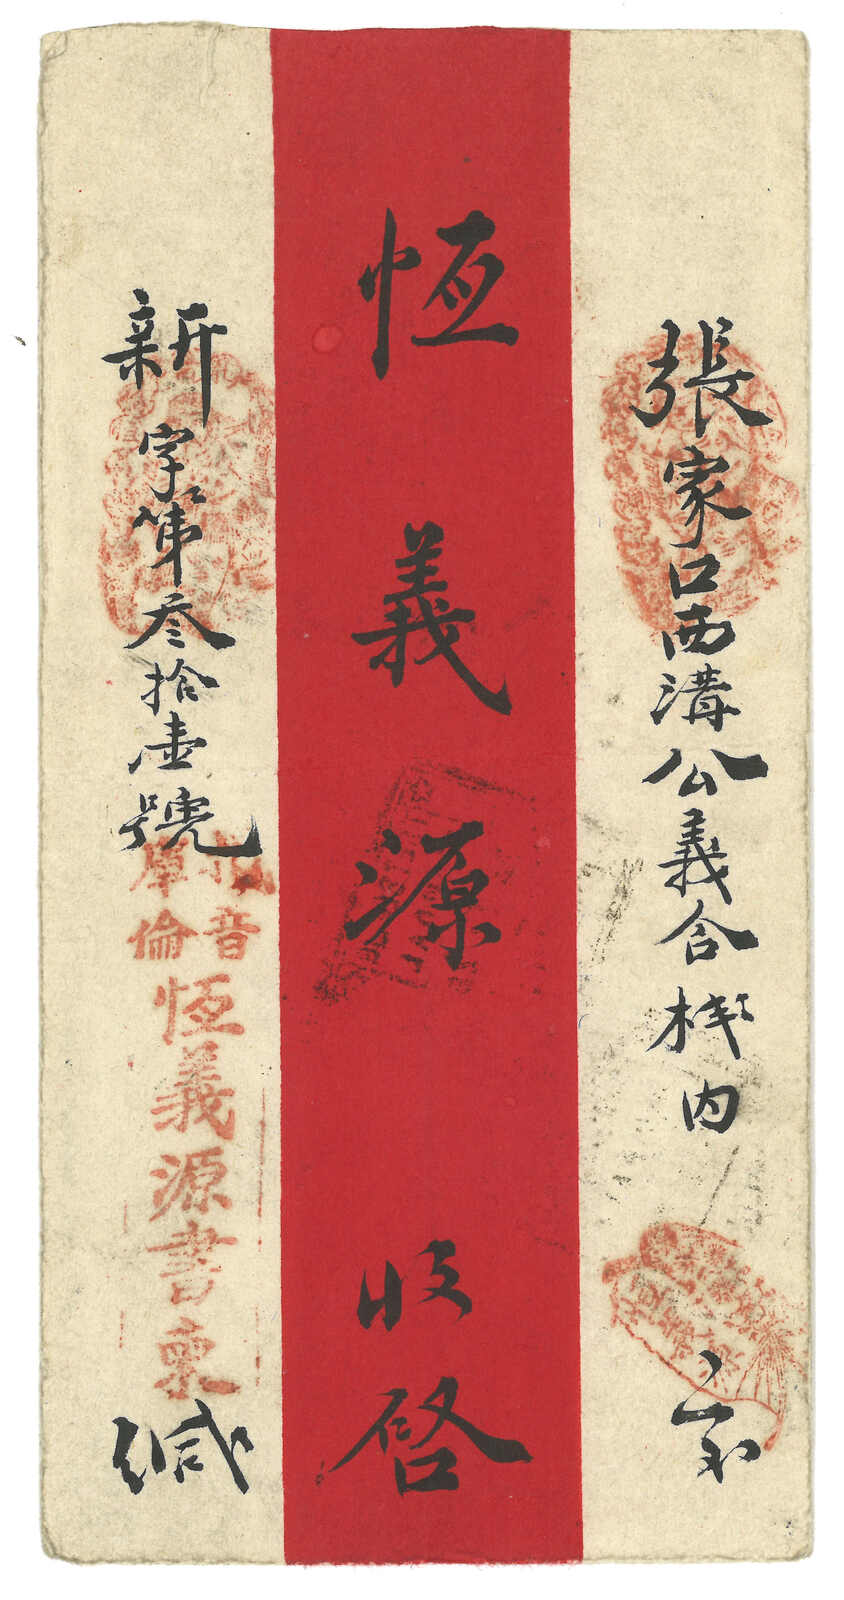 張家口西溝公義合棧内
恆義源 收啓
新字第叁拾壹號
庫倫
恆義源書柬
緘